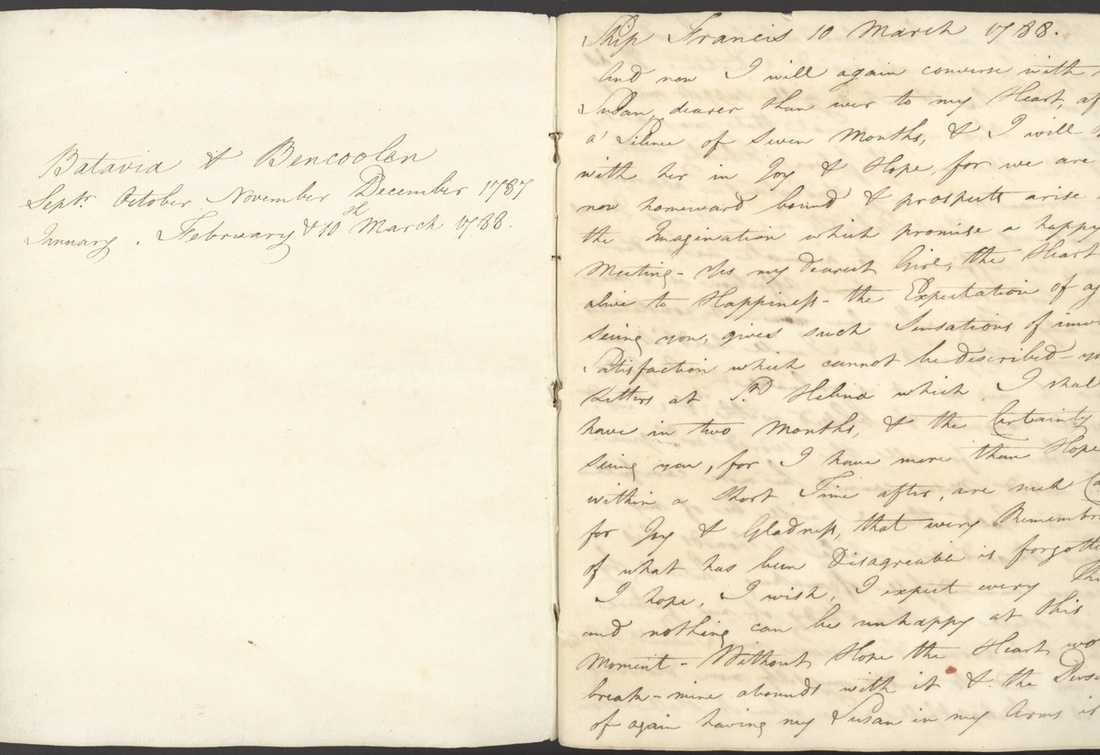 Batavia & Bencoolen
Septr. October November December 1787
January. February & 10th March 1788.
Ship Francis 10 March 1788.
And now I will again converse with
Susan, dearer than ever to my Heart, af
a' Silence of Seven Months, & I will
with her in Joy & Hope, for we are
now homeward bound & prospects arise
the Imagination which promise a happy
Meeting - Yes my dearest Girl, the Heart
alive to Happiness - the Expectation of ag
seeing you, gives such Sensations of inw
Satisfaction which cannot be described - yo
Letters at St. Helena which I shall
have in two Months, & the Certainty
seeing you, for I have more than Hope
within a short Time after, are such Ca
for Joy & Gladness, that every Remembra
of what has been Disagreable is forgotte
I hope, I wish, I expect every Thi
and nothing can be unhappy at this
Moment - Without Hope the Heart wo
break - mine abounds with it & the Perswa
of again having my Susan in my Arms is